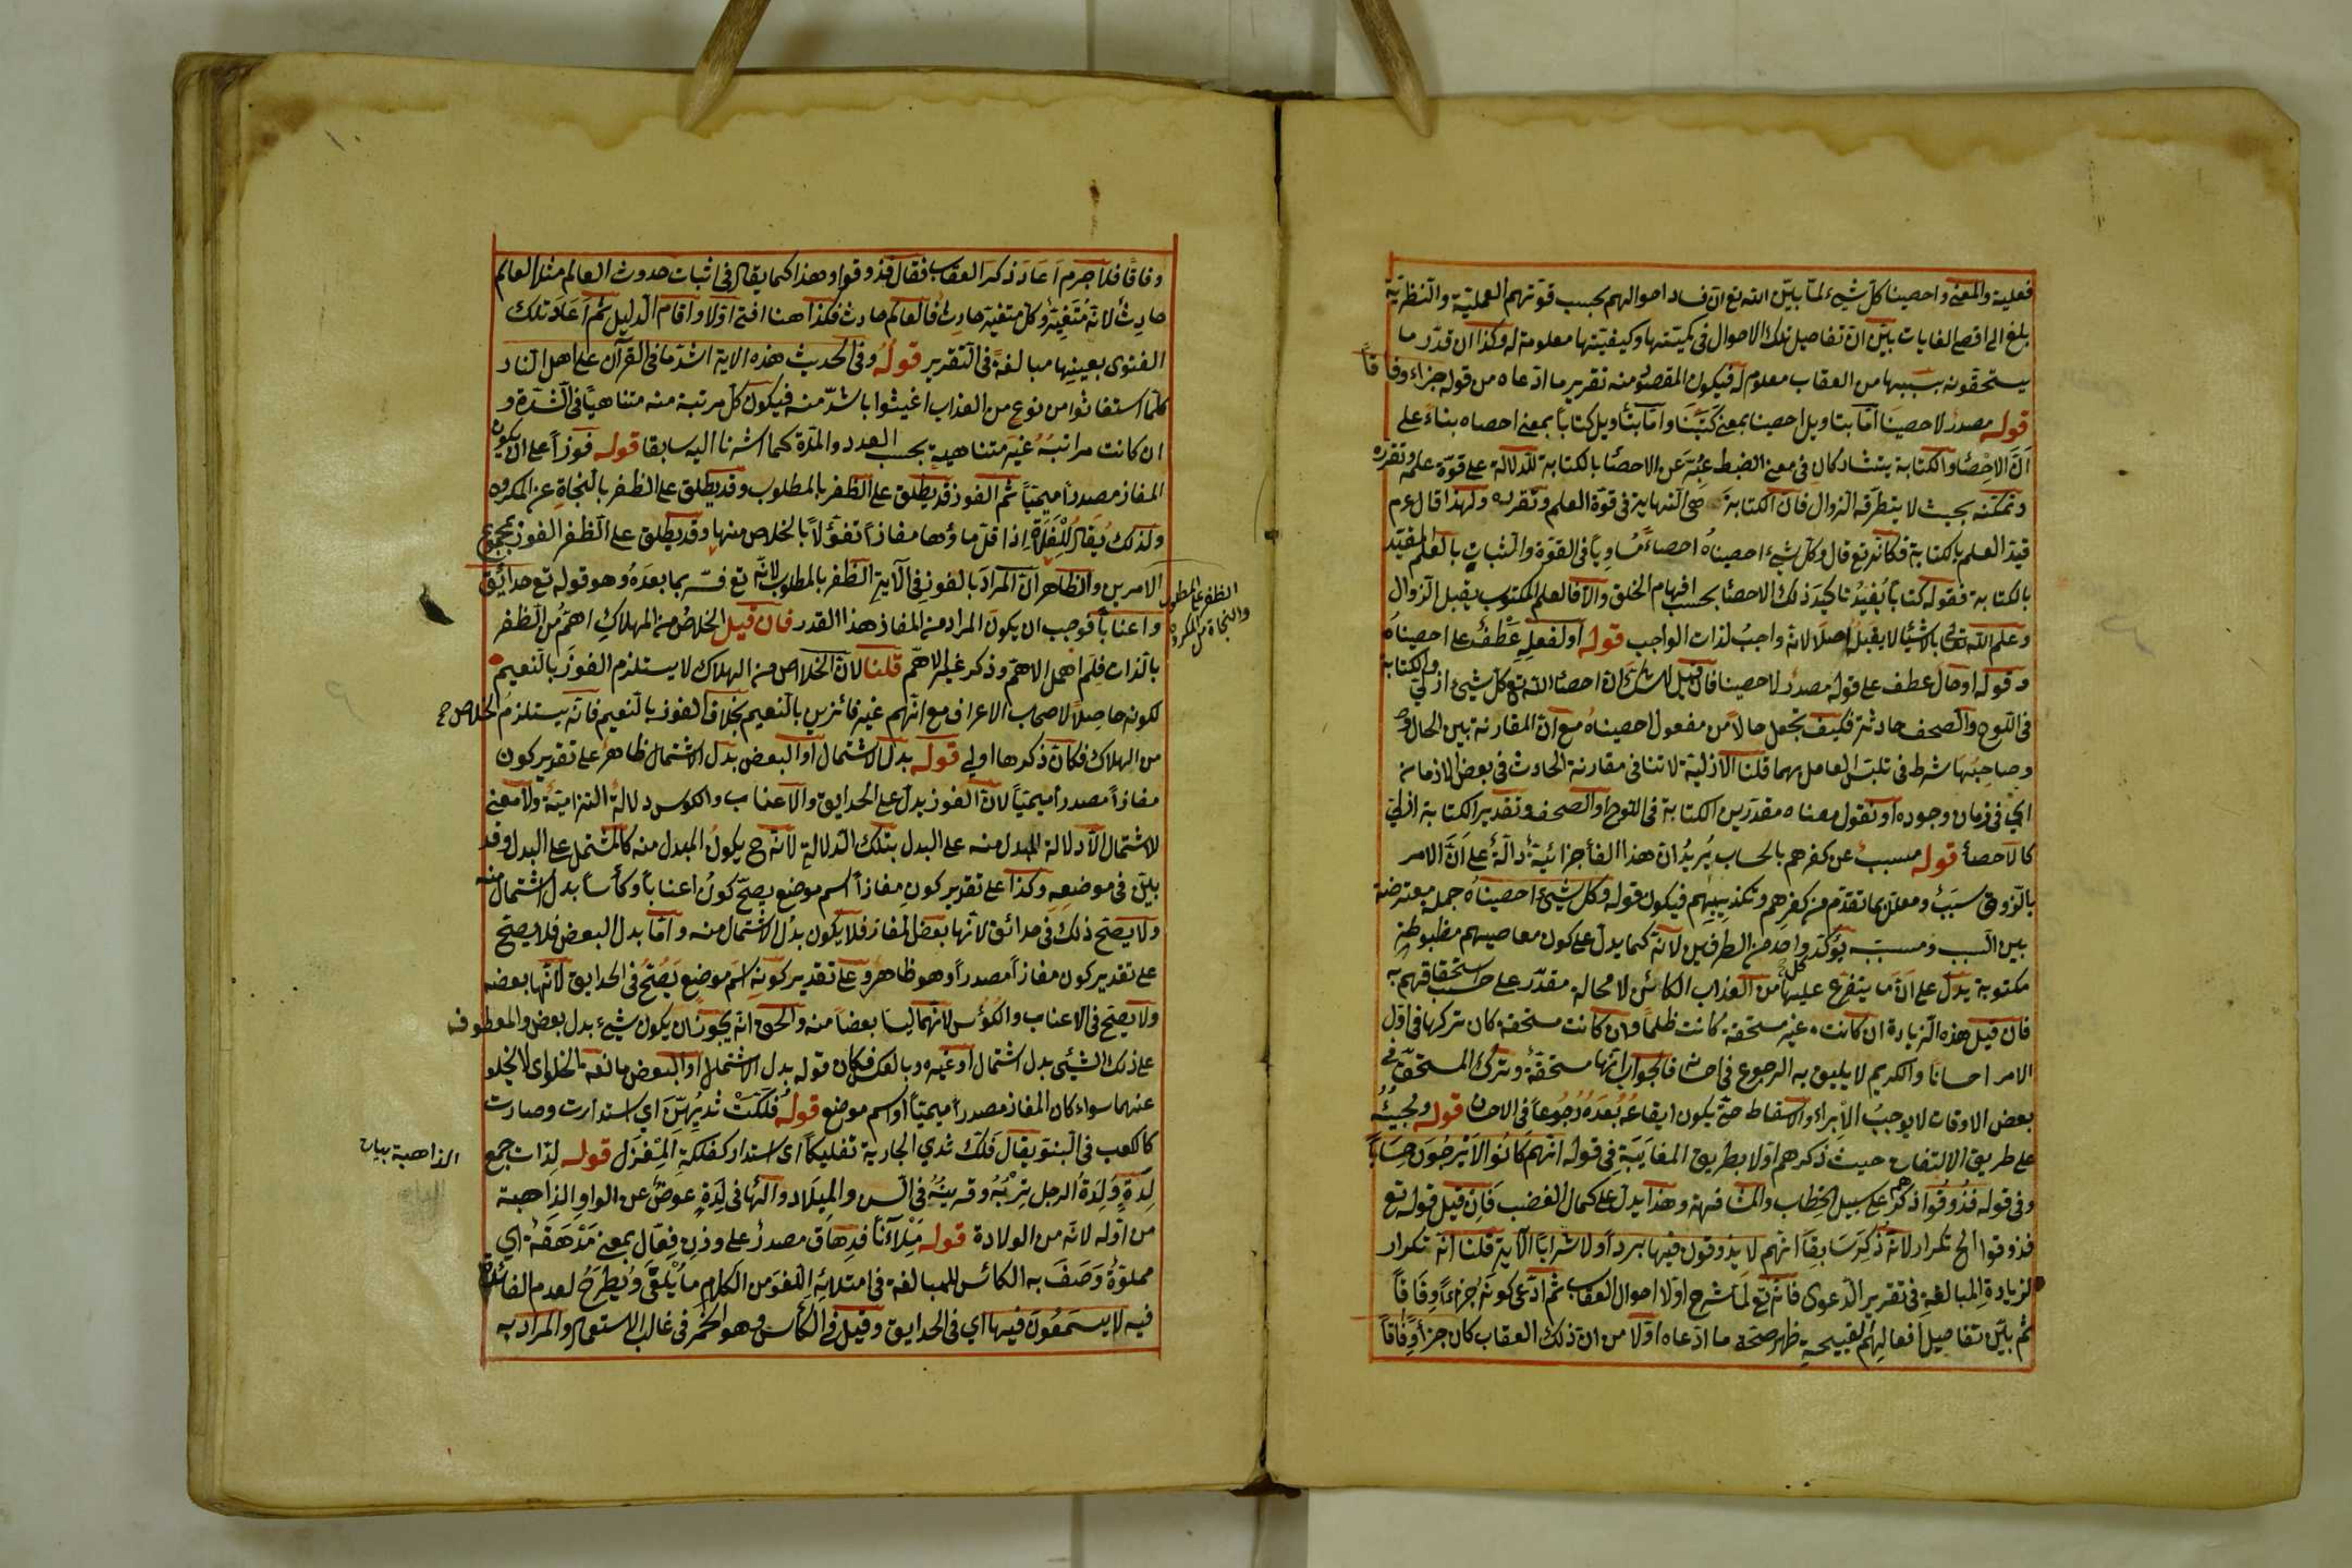 فعلية والمعنى واحصينا كل شيء لما بين الله تع ان فساد احوالهم بحسب قوتهم العملية والنظرية
بلغ الى اقصى الغايات بين ان تفاصيل تلك الاحوال فى كميتها وكيفيتها معلومة له وكذا ان قدر ما
يستحقونه بسببها من العقاب معلوم له فيكون المقصود منه تقرير ما ادعاه من قوله جزاء وفاقا
قوله مصدر لاحصينا اما بتاويل احصينا بمعنى كتبنا واما بتأويل كتابا بمعنى احصاه بناء على
ان الاحصاء والكتابة يتشاركان فى معنى الضبط عبر عن الاحصاء بالكتابة للدلالة على قوة علمه وتقرره
وتمكنه بحيث لا يتطرقه الزوال فان الكتابة هى النهاية فى قوة العلم وتقرره ولهذا قال عم
قيد العلم بالكتابة فكانه تع قال وكل شيء احصيناه احصاء مساويا فى القوة والثبات بالعلم المقيد
بالكتابة فقوله كتابا يفيد تاكيد ذلك الاحصاء بحسب افهام الخلق والا فالعلم المكتوب يقبل الزوال
وعلم الله تعالى بالاشياء لا يقبله اصلا لانه واجب لذات الواجب قوله او لفعله عطف على احصيناه
وقوله او حال عطف على قوله مصدر لاحصينا فان قيل لا شك ان احصاء الله تع كل شيء ازلي والكتابة
فى اللوح والصحف حادثة فكيف تجعل حالا من مفعول احصيناه مع ان المقارنة بين الحال
وصاحبها شرط فى تلبس العامل بهما قلنا الازلية لا تنافى مقارنة الحادث فى بعض الازمانة
اي فى زمان وجوده او نقول معناه مقدرين الكتابة فى اللوح او الصحف وتقدير الكتابة ازلي
كالاحصأ قوله مسبب عن كفرهم بالحساب يريد ان هذا الفأ جزائية دالة على ان الامر
بالذوق سبب ومعلل بما تقدم من كفرهم وتكذيبهم فيكون قوله وكل شيئ احصيناه جملة معترضة
بين السبب ومسببه يؤكد واحد من الطرفين لانه كما يدل على كون معاصيهم مظبوطة
مكتوبة يدل على ان ما يتفرع عليها من العذاب الكائن لا محالة مقدر على حسب استحقاقهم به
فان قيل هذه الزيادة ان كانت غير مستحقة كانت ظلما وان كانت مستحقة كان تركها فى اول
الامر احسانا والكريم لا يليق به الرجوع فى احسانه فالجواب انها مستحقة وترك المستحق فى
بعض الاوقات لا يوجب الابراء والاسقاط حتى يكون ايقاعه بعده رجوعا فى الاحسان قوله ومجيئه
على طريق الالتفات حيث ذكرهم اولا بطريق المغايبة فى قوله انهم كانوا لا يرجون حسابا
وفى قوله فذوقوا ذكرهم على سبيل الخطاب والمشافهة وهذا يدل على كمال الغضب فان قيل قوله تع
فذوقوا الخ تكرار لانه ذكر سابقا انهم لا يذوقون فيها بردا ولا شرابا الآية قلنا انه تكرار
لزيادة المبالغة فى تقرير الدعوى فانه تع لما شرح اولا احوال العقاب ثم ادعى كونه جزاء وفاقا
ثم بين تفاصيل افعالهم القبيحة ظهر صحة ما ادعاه اولا من ان ذلك العقاب كان جزأ وفاقا
وفاقا فلا جرم اعاد ذكر العقاب فقال فذوقوا وهذا كما يقال فى اثبات حدوث العالم مثلا العالم
حادث لانه متغير وكل متغير حادث فالعالم حادث فكذا ههنا افتى اولا واقام الدليل ثم اعاد تلك
الفتوى بعينها مبالغة فى التقرير قوله وفى الحديث هذه الاية اشد ما فى القرآن على اهل النار
كلما استغاثوا من نوع من العذاب اغيثوا باشد منه فيكون كل مرتبة منه متناهيا فى الشدة و
ان كانت مراتبه غير متناهية بحسب العدد والمدة كما اشرنا اليه سابقا قوله فوزا على ان يكون
المفاز مصدرا ميميا ثم الفوز قد يطلق على الظفر بالمطلوب وقد يطلق على الظفر بالنجاة عن المكروه
ولذلك يقال للفلاة اذا قل ماؤها مفازا تفؤلا بالخلاص منها وقد يطلق على الظفر الفوز بمجموع
الامرين والظاهر ان المراد بالفوز فى الآية الظفر بالمطلوب لانه تع فسر بما بعده وهو قوله تع حدائق
الظفر بالمطلوب
والنجاة من المكروه
واعنابا فوجب ان يكون المراد من المفاز هذا القدر فان قيل الخلاص من المهلاك اهم من الظفر
بالذات فلم اهمل الاهم وذكر غير الاهم قلنا لان الخلاص من الهلاك لا يستلزم الفوز بالنعيم
لكونه حاصلا لاصحاب الاعراف مع انهم غير فائزين بالنعيم بخلاف الفوز بالنعيم فانه يستلزم الخلاص
من الهلاك فكان ذكرها اولى قوله بدل الاشتمال او البعض بدل الاشتمال ظاهر على تقدير كون
مفازا مصدرا ميميا لان الفوز يدل على الحدايق والاعناب والكوس دلالة التزامية ولا معنى
لاشتمال الا دلالة المبدل منه على البدل بتلك الدلالة لانه ح يكون المبدل منه كالمشتمل على البدل وقد
بين فى موضعه وكذا على تقدير كون مفازا اسم موضع يصح كون اعنابا وكأسا بدل اشتمال منه
ولا يصح ذلك فى حدائق لانها بعض المفاز فلا يكون بدل الاشتمال منه واما بدل البعض فلا يصح
على تقدير كون مفازا مصدرا وهو ظاهر وعلى تقدير كونه اسم موضع يصح فى الحدايق لانها بعضه
ولا يصح فى الاعناب والكؤس لانهما ليسا بعضا منه والحق انه يجوز ان يكون شيء بدل بعض والمعطوف
على ذلك الشيئ بدل اشتمال او غيره وبالعكس فكان قوله بدل الاشتمال او البعض مانعة الخلو اى لا يخلو
عنهما سواء كان المفاز مصدرا ميميا او اسم موضع قوله فلكت ثديهن اي استدارت وصارت
كالكعب فى النتو يقال فلك ثدي الجارية تفليكا اى استدار كفلكة المغزل قوله لدات جمع
لدة ولدة الرجل تربه وقرينه فى السن والميلاد والتاء فى لدة عوض عن الواو الذاهبة
الذاهبة بيان
من اوله لانه من الولادة قوله ملآنا فدهاق مصدر على وزن فعال بمعنى مدهقة اي
مملوة وصف به الكائس للمبالغة فى امتلائه اللغو من الكلام ما يلقى ويطرح لعدم الفائدة
فيه لا يسمعون فيها اي فى الحدايق وقيل فى الكأس وهو الخمر فى غالب الاستعمال والمراد به